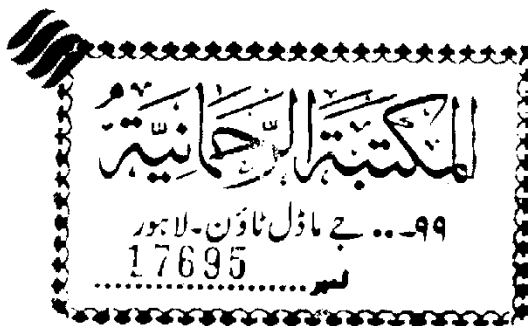 المکتبۃ الرحمانیۃ
۹۹۔.. جے ماڈل ٹاؤن۔لاہور
نمبر............17695